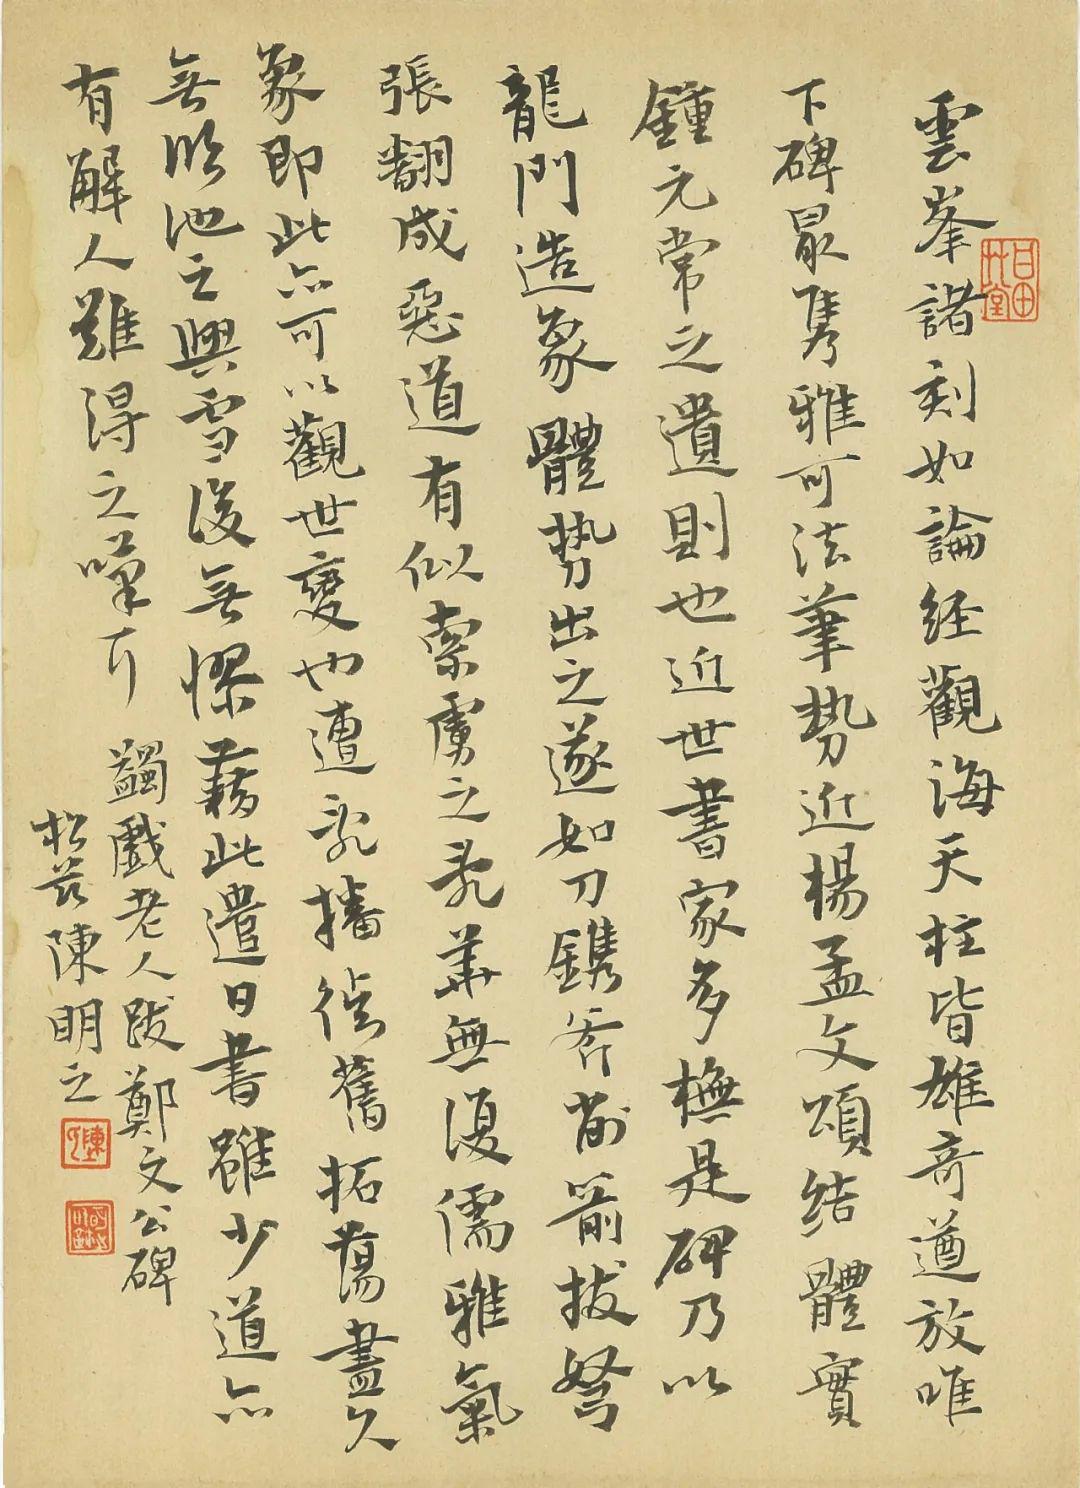 雲峯諸刻如論經觀海天柱皆雄奇遒放唯
下碑最雋雅可法筆勢近楊孟文頌結體實
鍾元常之遺則也近世書家多橅是碑乃以
龍門造象體勢出之遂如刀鐫斧削箭拔弩
張翻成惡道有似索虜之乱華無復儒雅氣
象即此亦可以觀世變也遭乱播徙舊拓蕩盡久
無臨池之興雪後無憀藉此遣日書雖少道亦
有解人難得之嘆耳
蠲戲老人跋鄭文公碑
松茲陳明之
日田
艸堂
陳